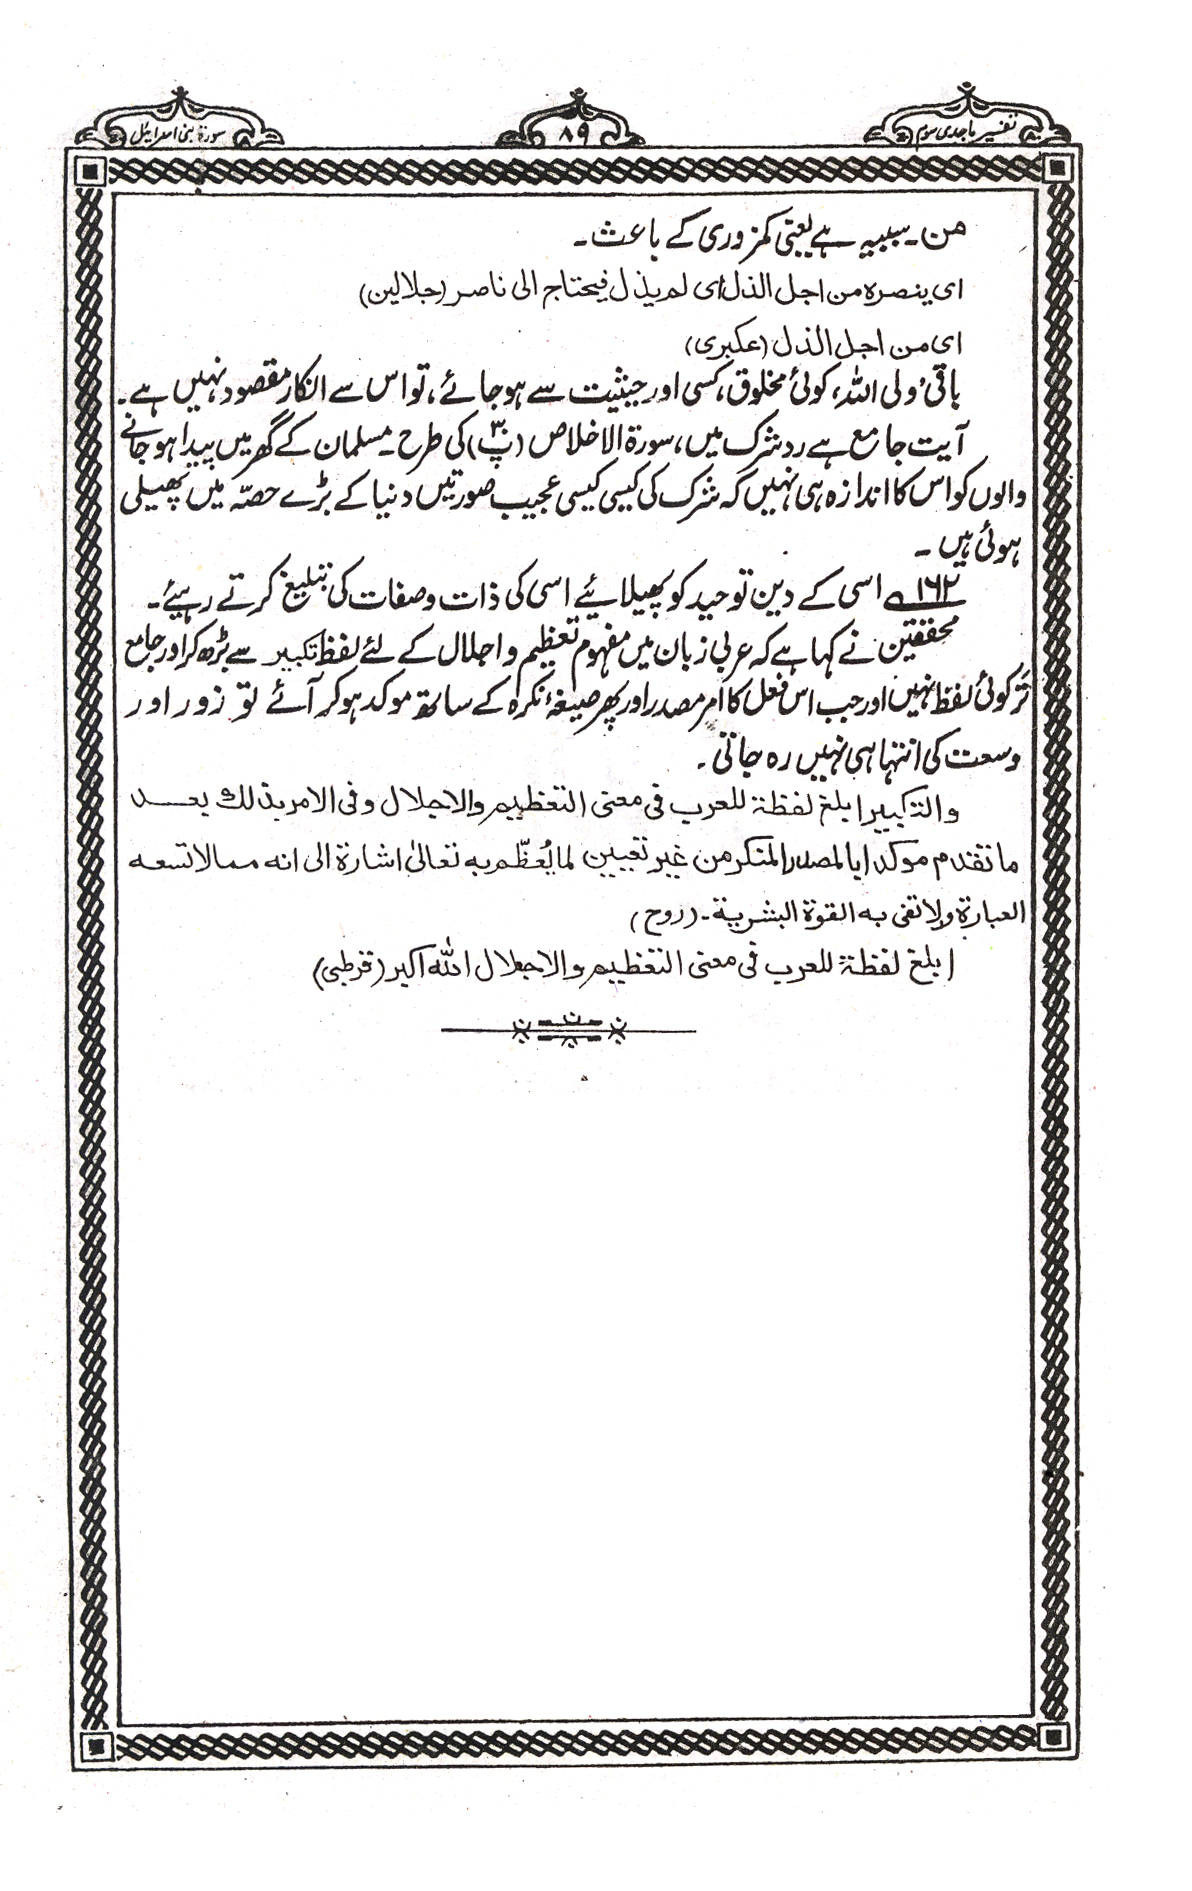 تفسیر ماجدی سوم
۸۹
سورۃ بنی اسرائیل
من۔ سببیہ ہے یعنی کمزوری کے باعث۔
ای ینصرہ من اجل الذل ای لم یذل فیحتاج الی ناصر (جلالین)
ای من اجل الذل (عکبری)
باقی ولی اللہ، کوئی مخلوق، کسی اور حیثیت سے ہوجائے، تو اس سے انکار مقصود نہیں ہے۔
آیت جامع ہے رد شرک میں، سورۃ الاخلاص (پ۳۰) کی طرح۔ مسلمان کے گھر میں پیدا ہو جانے
والوں کو اس کا اندازہ ہی نہیں کہ شرک کی کیسی کیسی عجیب صورتیں دنیا کے بڑے حصّہ میں پھیلی
ہوئی ہیں۔
۱۶۲؎ اسی کے دین توحید کو پھیلائیے اسی کی ذات وصفات کی تبلیغ کرتے رہیئے۔
محققین نے کہا ہے کہ عربی زبان میں مفہوم تعظیم و اجلال کے لئے لفظ تکبیر سے بڑھ کر اور جامع
تر کوئی لفظ نہیں اور جب اس فعل کا امر مصدر اور پھر صیغۂ نکرہ کے ساتھ موکد ہوکر آئے تو زور اور
وسعت کی انتہا ہی نہیں رہ جاتی۔
والتکبیر ابلغ لفظۃ للعرب فی معنی التعظیم والاجلال وفی الامر بذلک بعد
ما تقدم موکدا بالمصدر المنکر من غیر تعیین لما یُعظّم بہ تعالیٰ اشارۃ الی انہ مما لا تسعہ
العبارۃ ولا تفی بہ القوۃ البشریۃ۔ (روح)
ابلغ لفظۃ للعرب فی معنی التعظیم والاجلال اللہ اکبر (قرطبی)